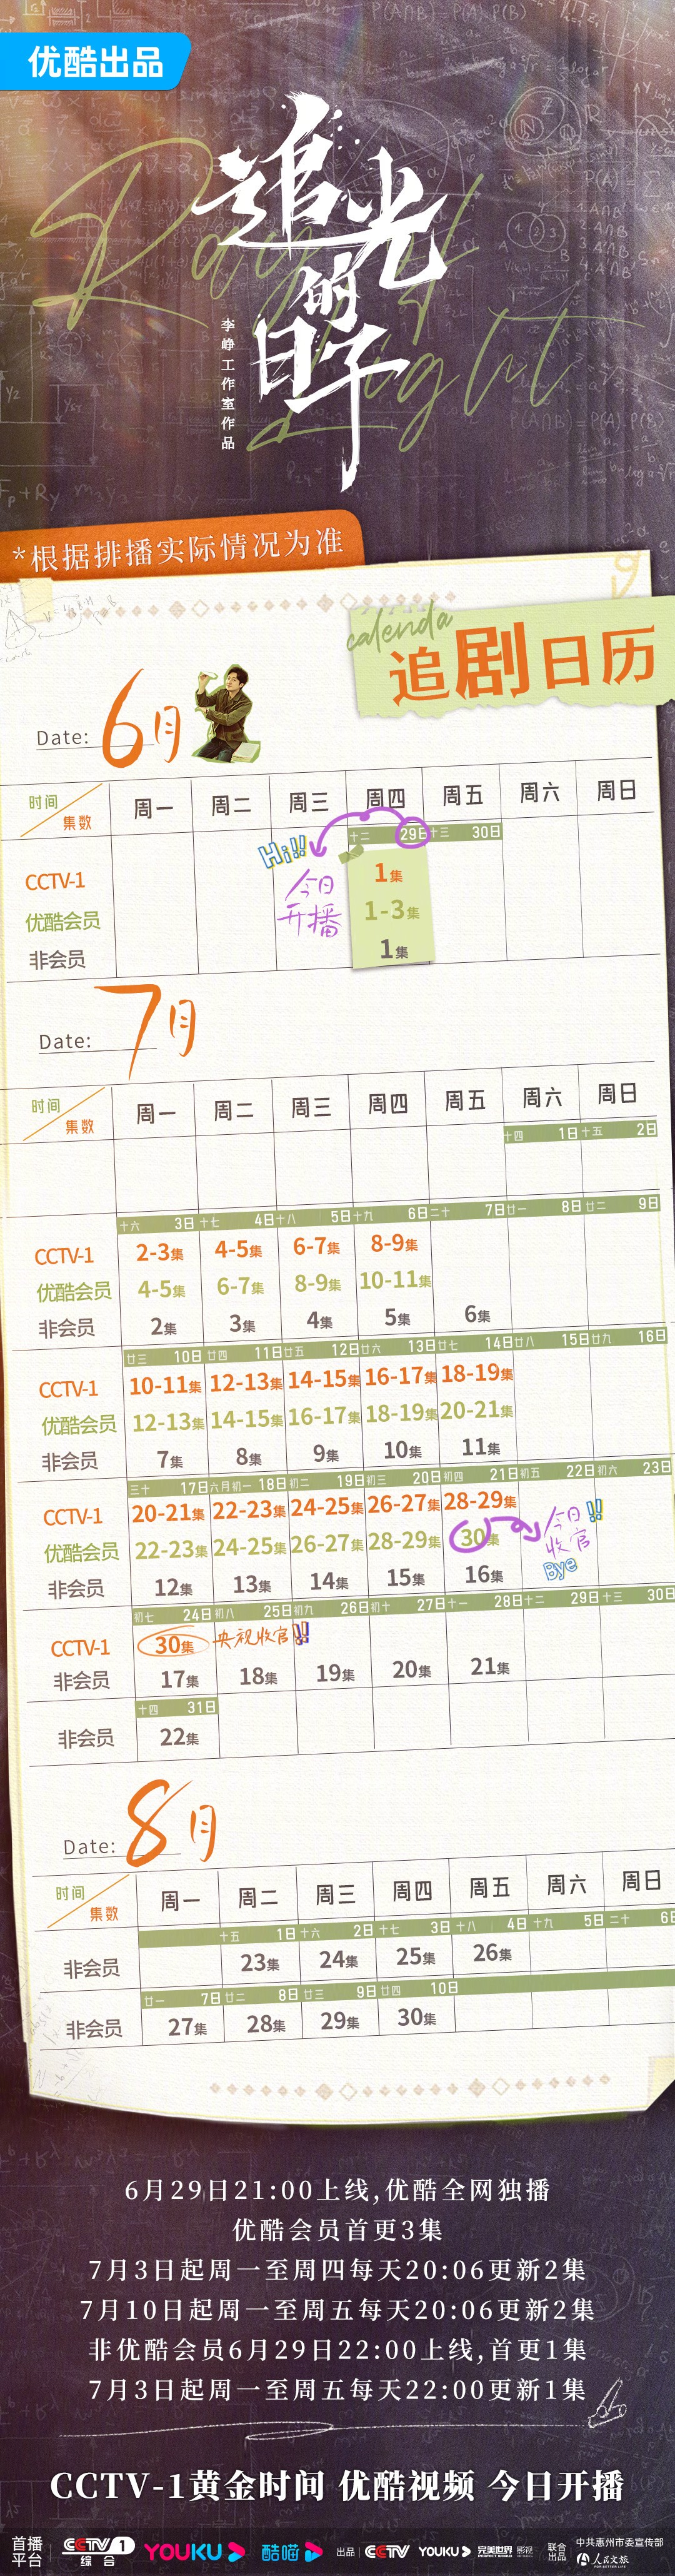 优酷出品
追光的日子
Ray of Light
李峥工作室作品
*根据排播实际情况为准
calenda
追剧日历
Date: 6月
时间 集数 周一 周二 周三 周四 周五 周六 周日
十二 29日 十三 30日
Hi!!
今日开播
CCTV-1 1集
优酷会员 1-3集
非会员 1集
Date: 7月
时间 集数 周一 周二 周三 周四 周五 周六 周日
十四 1日 十五 2日
十六 3日 十七 4日 十八 5日 十九 6日 二十 7日 廿一 8日 廿二 9日
CCTV-1 2-3集 4-5集 6-7集 8-9集
优酷会员 4-5集 6-7集 8-9集 10-11集
非会员 2集 3集 4集 5集 6集
廿三 10日 廿四 11日 廿五 12日 廿六 13日 廿七 14日 廿八 15日 廿九 16日
CCTV-1 10-11集 12-13集 14-15集 16-17集 18-19集
优酷会员 12-13集 14-15集 16-17集 18-19集 20-21集
非会员 7集 8集 9集 10集 11集
三十 17日 六月初一 18日 初二 19日 初三 20日 初四 21日 初五 22日 初六 23日
CCTV-1 20-21集 22-23集 24-25集 26-27集 28-29集
优酷会员 22-23集 24-25集 26-27集 28-29集 30集
今日收官!!
Bye
非会员 12集 13集 14集 15集 16集
初七 24日 初八 25日 初九 26日 初十 27日 十一 28日 十二 29日 十三 30日
CCTV-1 30集 央视收官!!
非会员 17集 18集 19集 20集 21集
十四 31日
非会员 22集
Date: 8月
时间 集数 周一 周二 周三 周四 周五 周六 周日
十五 1日 十六 2日 十七 3日 十八 4日 十九 5日 二十 6日
非会员 23集 24集 25集 26集
廿一 7日 廿二 8日 廿三 9日 廿四 10日
非会员 27集 28集 29集 30集
6月29日21:00上线,优酷全网独播
优酷会员首更3集
7月3日起周一至周四每天20:06更新2集
7月10日起周一至周五每天20:06更新2集
非优酷会员6月29日22:00上线,首更1集
7月3日起周一至周五每天22:00更新1集
CCTV-1黄金时间 优酷视频 今日开播
首播平台 CCTV 1 综合 YOUKU 酷喵 出品 CCTV YOUKU 完美世界 影视 PERFECT WORLD 联合出品 中共惠州市委宣传部 人民文旅